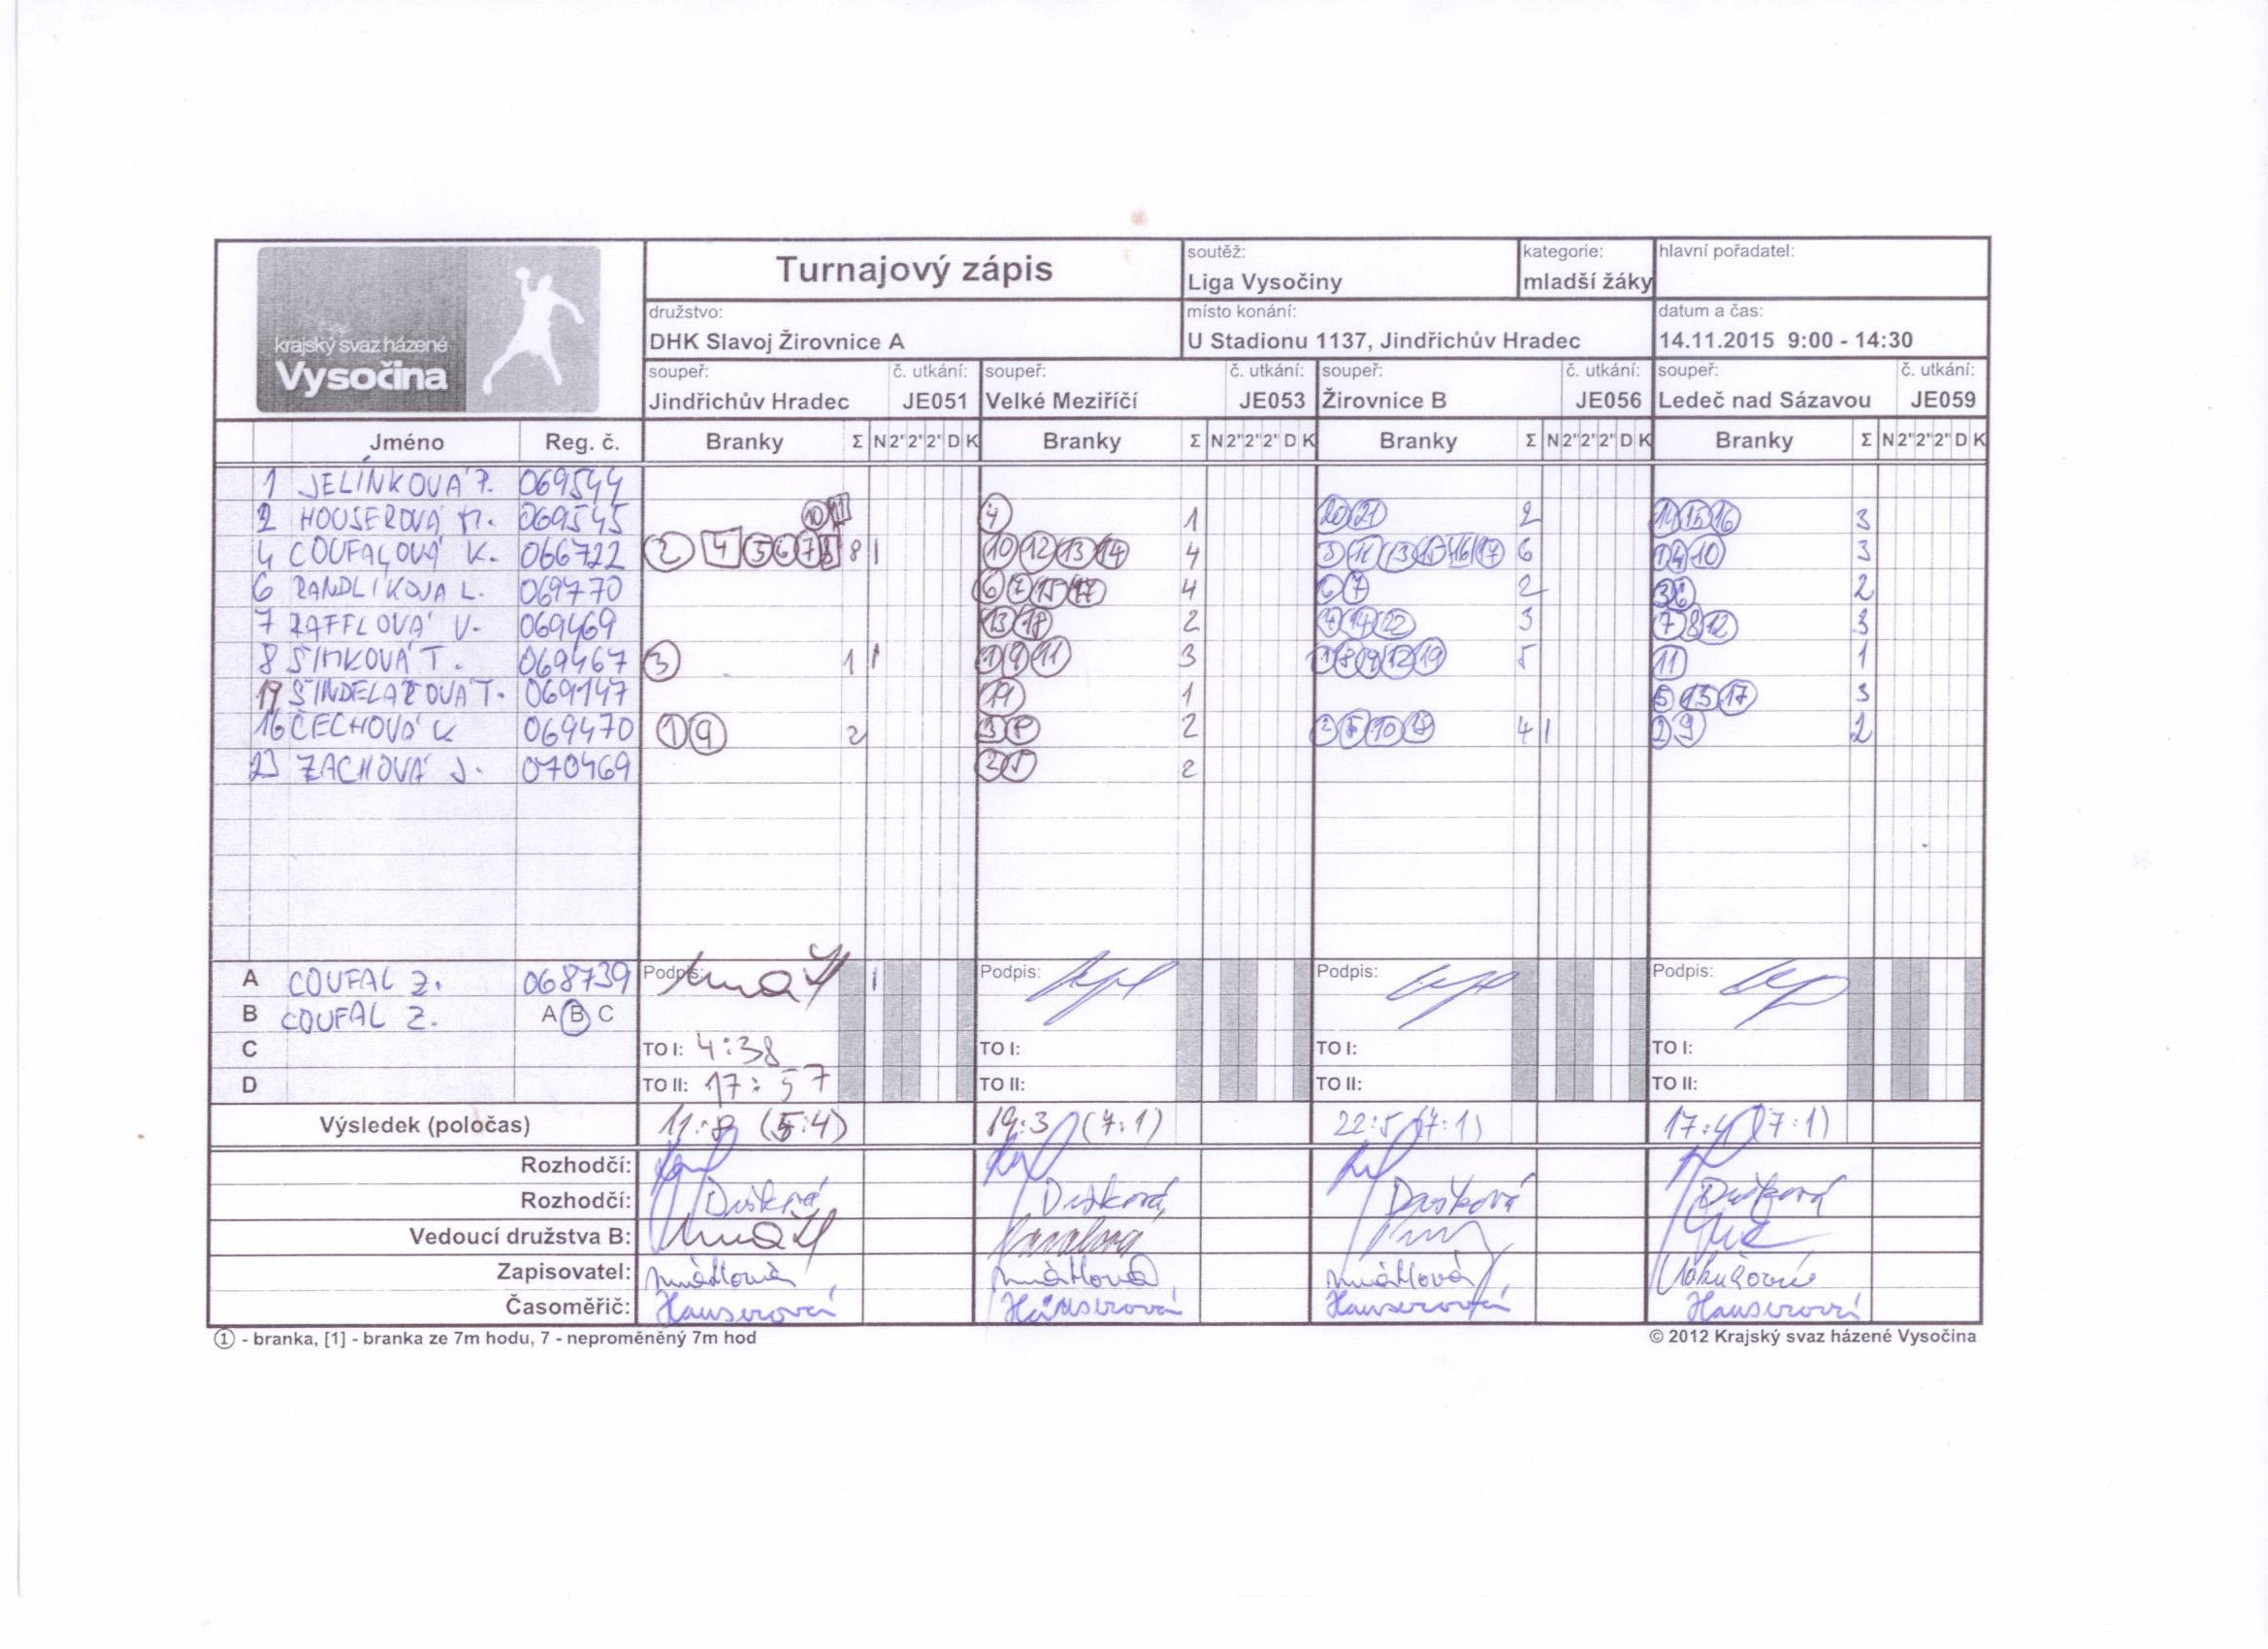 krajský svaz házené
Vysočina
Turnajový zápis
soutěž:
Liga Vysočiny
kategorie:
mladší žáky
hlavní pořadatel:
družstvo:
DHK Slavoj Žirovnice A
místo konání:
U Stadionu 1137, Jindřichův Hradec
datum a čas:
14.11.2015 9:00 - 14:30
soupeř: č. utkání: soupeř: č. utkání: soupeř: č. utkání: soupeř: č. utkání:
Jindřichův Hradec JE051 Velké Meziříčí JE053 Žirovnice B JE056 Ledeč nad Sázavou JE059
Jméno Reg. č. Branky Σ N 2' 2' 2' D K Branky Σ N 2' 2' 2' D K Branky Σ N 2' 2' 2' D K Branky Σ N 2' 2' 2' D K
1 JELÍNKOVÁ P. 069544
2 HOUSEROVÁ M. 069545 4 1 20 21 2 14 15 16 3
4 COUFALOVÁ K. 066722 2 4 5 6 7 8 10 11 8 1 10 12 13 14 4 3 11 13 15 16 17 6 1 4 10 3
6 RANDLÍKOVA L. 069770 6 7 15 17 4 6 7 2 3 6 2
7 RAFFLOVÁ V. 069469 13 18 2 4 14 22 3 7 8 12 3
8 ŠIMKOVÁ T. 069467 3 1 1 1 9 11 3 1 8 9 12 19 5 11 1
19 ŠINDELÁŘOVÁ T. 069147 19 1 5 13 17 3
16 ČECHOVÁ K 069470 1 9 2 3 8 2 2 5 10 18 4 1 2 9 2
23 ZACHOVÁ J. 070469 2 5 2
A COUFAL Z. 068739 Podpis: 1 Podpis: Podpis: Podpis:
B COUFAL Z. A B C
C TO I: 4:38 TO I: TO I: TO I:
D TO II: 17:57 TO II: TO II: TO II:
Výsledek (poločas) 11:8 (5:4) 19:3 (7:1) 22:5 (7:1) 17:4 (7:1)
Rozhodčí:
Rozhodčí: Dušková Dušková Dušková Dušková
Vedoucí družstva B:
Zapisovatel:
Časoměřič: Hauserová Hauserová Hauserová Hauserová
① - branka, [1] - branka ze 7m hodu, 7 - neproměněný 7m hod
© 2012 Krajský svaz házené Vysočina